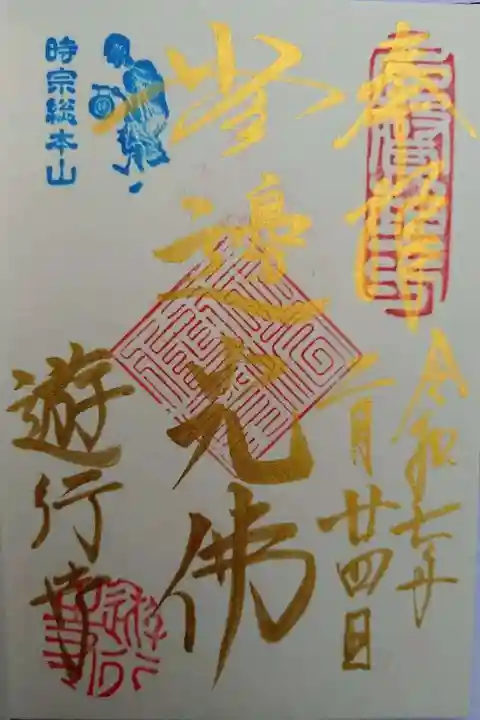 令和七年
二月廿四日
無邊光佛
時宗総本山
遊行寺